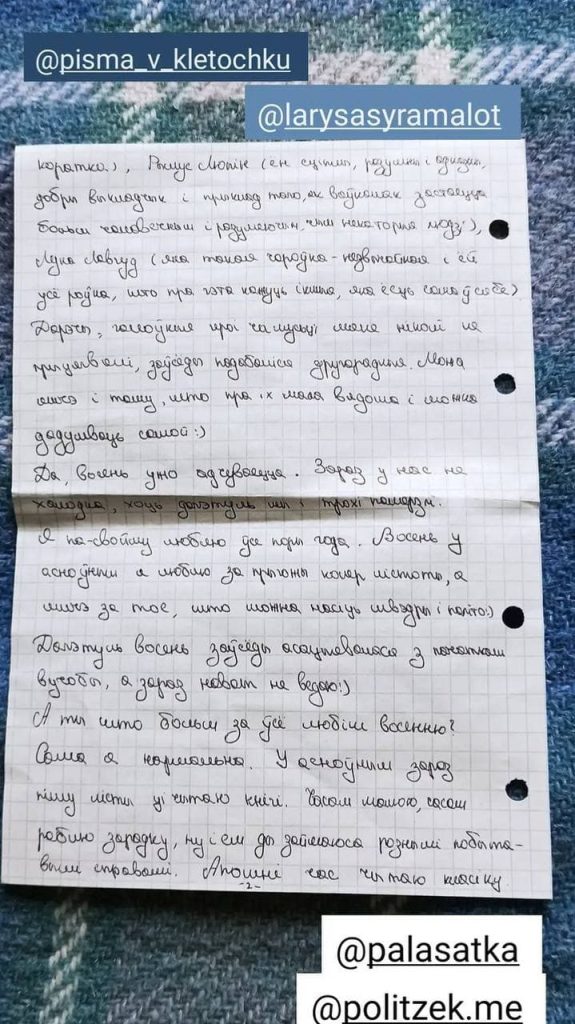 @pisma_v_kletochku
@larysasyramalot
коратка), Рэмус Люпін (ён сціплы, разумны і адказны,
добры выкладчык і прыклад таго, як ваўкалак застаецца
больш чалавечным і разумеючым, чым некаторыя людзі),
Луна Лавгуд (яна такая чароўна-нязвычайная і ёй
усё роўна, што пра гэта кажуць іншыя, яна ёсць сама ў сабе)
Дарэчы, галоўныя героі чамусьці мяне ніколі не
прыцягвалі, заўсёды падабаліся другарадныя. Можа
яшчэ і таму, што пра іх мала вядома і можна
дадумваць самой:)
Да, восень ужо адчуваецца. Зараз у нас не
халодна, хоць дагэтуль мы і трохі памерзлі.
Я па-свойму люблю ўсе поры года. Восень у
асноўным я люблю за прыгожы колер лістоты, а
яшчэ за тое, што можна насіць швэдры і паліто:)
Дагэтуль восень заўсёды асацыявалася з пачаткам
вучобы, а зараз нават не ведаю:)
А ты што больш за ўсё любіш восенню?
Сама я нармальна. У асноўным зараз
пішу лісты ці чытаю кнігі. Часам малюю, часам
раблю зарадку, ну і ем ды займаюся рознымі побыта-
вымі справамі. Апошні час чытаю класіку
-2-
@palasatka
@politzek.me